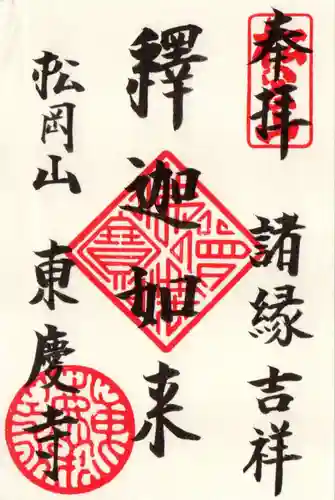 奉拝
諸縁吉祥
釋迦如来
松岡山 東慶寺